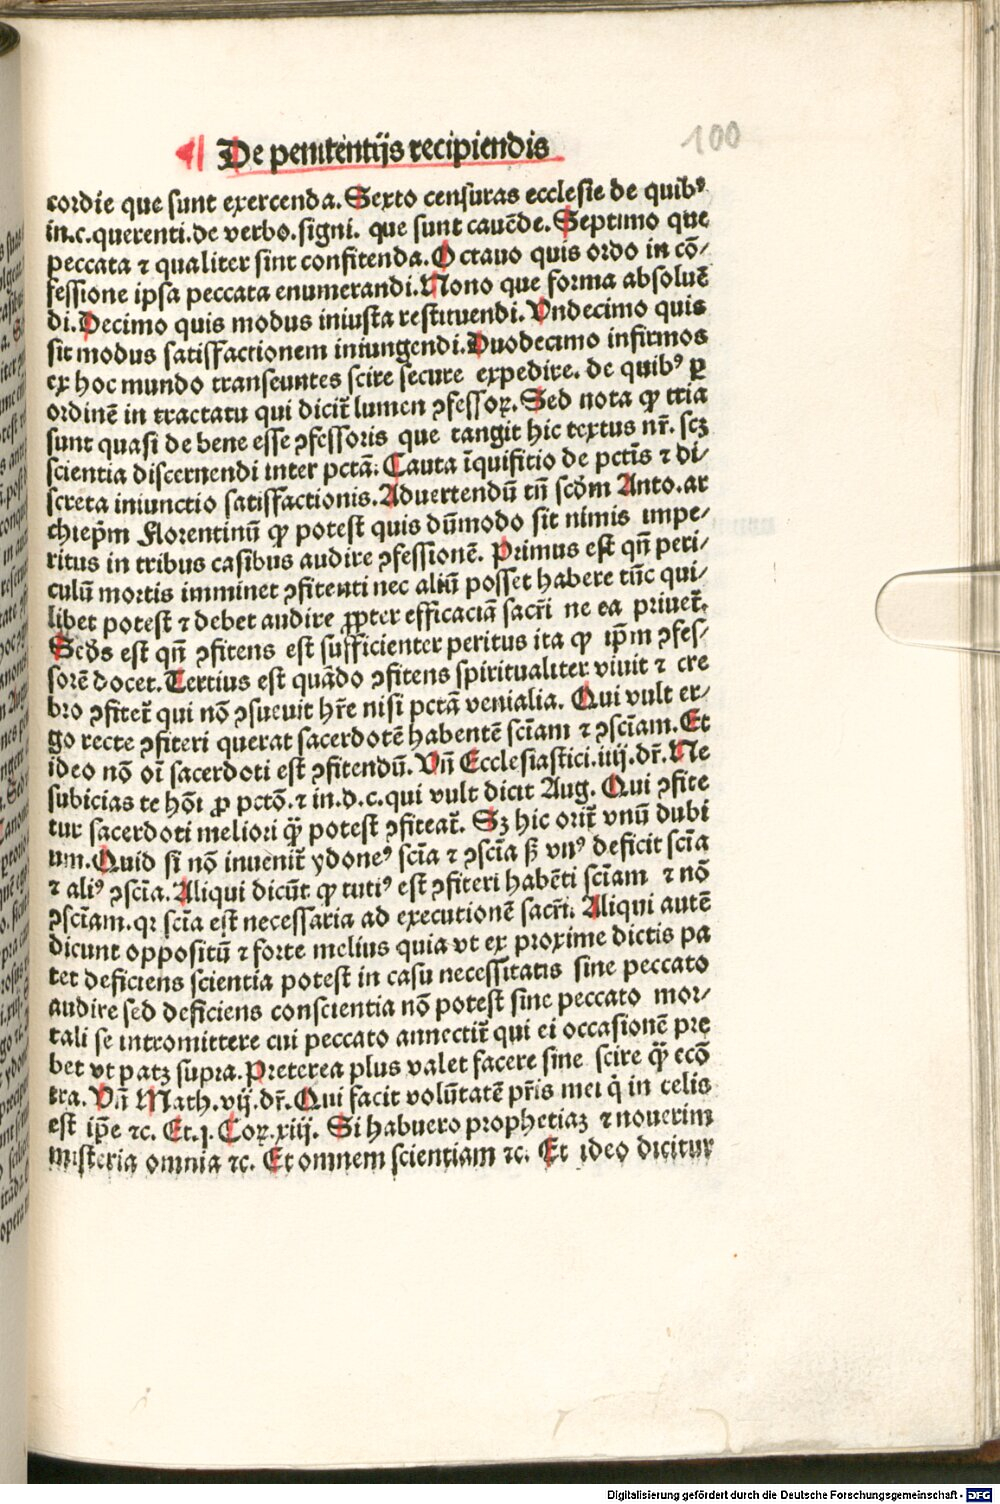 ¶ De penitentijs recipiendis
100
cordie que sunt exercenda. Sexto censuras ecclesie de quibꝰ
in.c.querenti.de verbo.signi. que sunt cauẽde. Septimo que
peccata ⁊ qualiter sint confitenda. Octauo quis ordo in cõ/
fessione ipsa peccata enumerandi. Nono que forma absoluẽ
di. Decimo quis modus iniusta restituendi. Vndecimo quis
sit modus satisfactionem iniungendi. Duodecimo infirmos
ex hoc mundo transeuntes scire secure expedire. de quibꝰ ꝑ
ordinẽ in tractatu qui dicit̃ lumen ꝯfessoꝝ. Sed nota ꝙ tria
sunt quasi de bene esse ꝯfessoris que tangit hic textus nr̃. scꝫ
scientia discernendi inter pctã. Cauta ĩquisitio de pctĩs ⁊ di/
screta iniunctio satisfactionis. Aduertendũ tñ scd̃m Anto.ar
chiep̃m Florentinũ ꝙ potest quis dũmodo sit nimis impe/
ritus in tribus casibus audire ꝯfessionẽ. Primus est qñ peri/
culũ mortis imminet ꝯfitenti nec aliũ posset habere tũc qui/
libet potest ⁊ debet audire ꝓpter efficaciã sacr̃i ne ea priuet̃.
Secd̃s est qñ ꝯfitens est sufficienter peritus ita ꝙ ip̃m ꝯfes/
sorẽ docet. Tertius est quãdo ꝯfitens spiritualiter viuit ⁊ cre
bro ꝯfitet̃ qui nõ ꝯsueuit hr̃e nisi pctã venialia. Qui vult er/
go recte ꝯfiteri querat sacerdotẽ habentẽ scĩam ⁊ ꝯscĩam. Et
ideo nõ oĩ sacerdoti est ꝯfitendũ. Vñ Ecclesiastici.iiij.dr̃. Ne
subicias te hõi ꝓ pctõ.⁊ in.d.c.qui vult dicit Aug. Qui ꝯfite
tur sacerdoti meliori q̃ꝫ potest ꝯfiteat̃. Sꝫ hic orit̃ vnũ dubi
um. Quid si nõ inuenit̃ ydoneꝰ scĩa ⁊ ꝯscĩa sꝫ vnꝰ deficit scĩa
⁊ aliꝰ ꝯscĩa. Aliqui dicũt ꝙ tutiꝰ est ꝯfiteri habẽti scĩam ⁊ nõ
ꝯscĩam. qꝛ scĩa est necessaria ad executionẽ sacr̃i. Aliqui autẽ
dicunt oppositũ ⁊ forte melius quia vt ex proxime dictis pa
tet deficiens scientia potest in casu necessitatis sine peccato
audire sed deficiens conscientia nõ potest sine peccato mor/
tali se intromittere cui peccato annectit̃ qui ei occasionẽ prę
bet vt patꝫ supra. Preterea plus valet facere sine scire q̃ꝫ ecõ
tra. Vñ Math.vij.dr̃. Qui facit volũtatẽ pr̃is mei q̇ in celis
est ip̃e ⁊c. Et.j. Coꝝ.xiij. Si habuero prophetiaꝫ ⁊ nouerim
misteria omnia ⁊c. Et omnem scientiam ⁊c. Et ideo dicitur
Digitalisierung gefördert durch die Deutsche Forschungsgemeinschaft - DFG